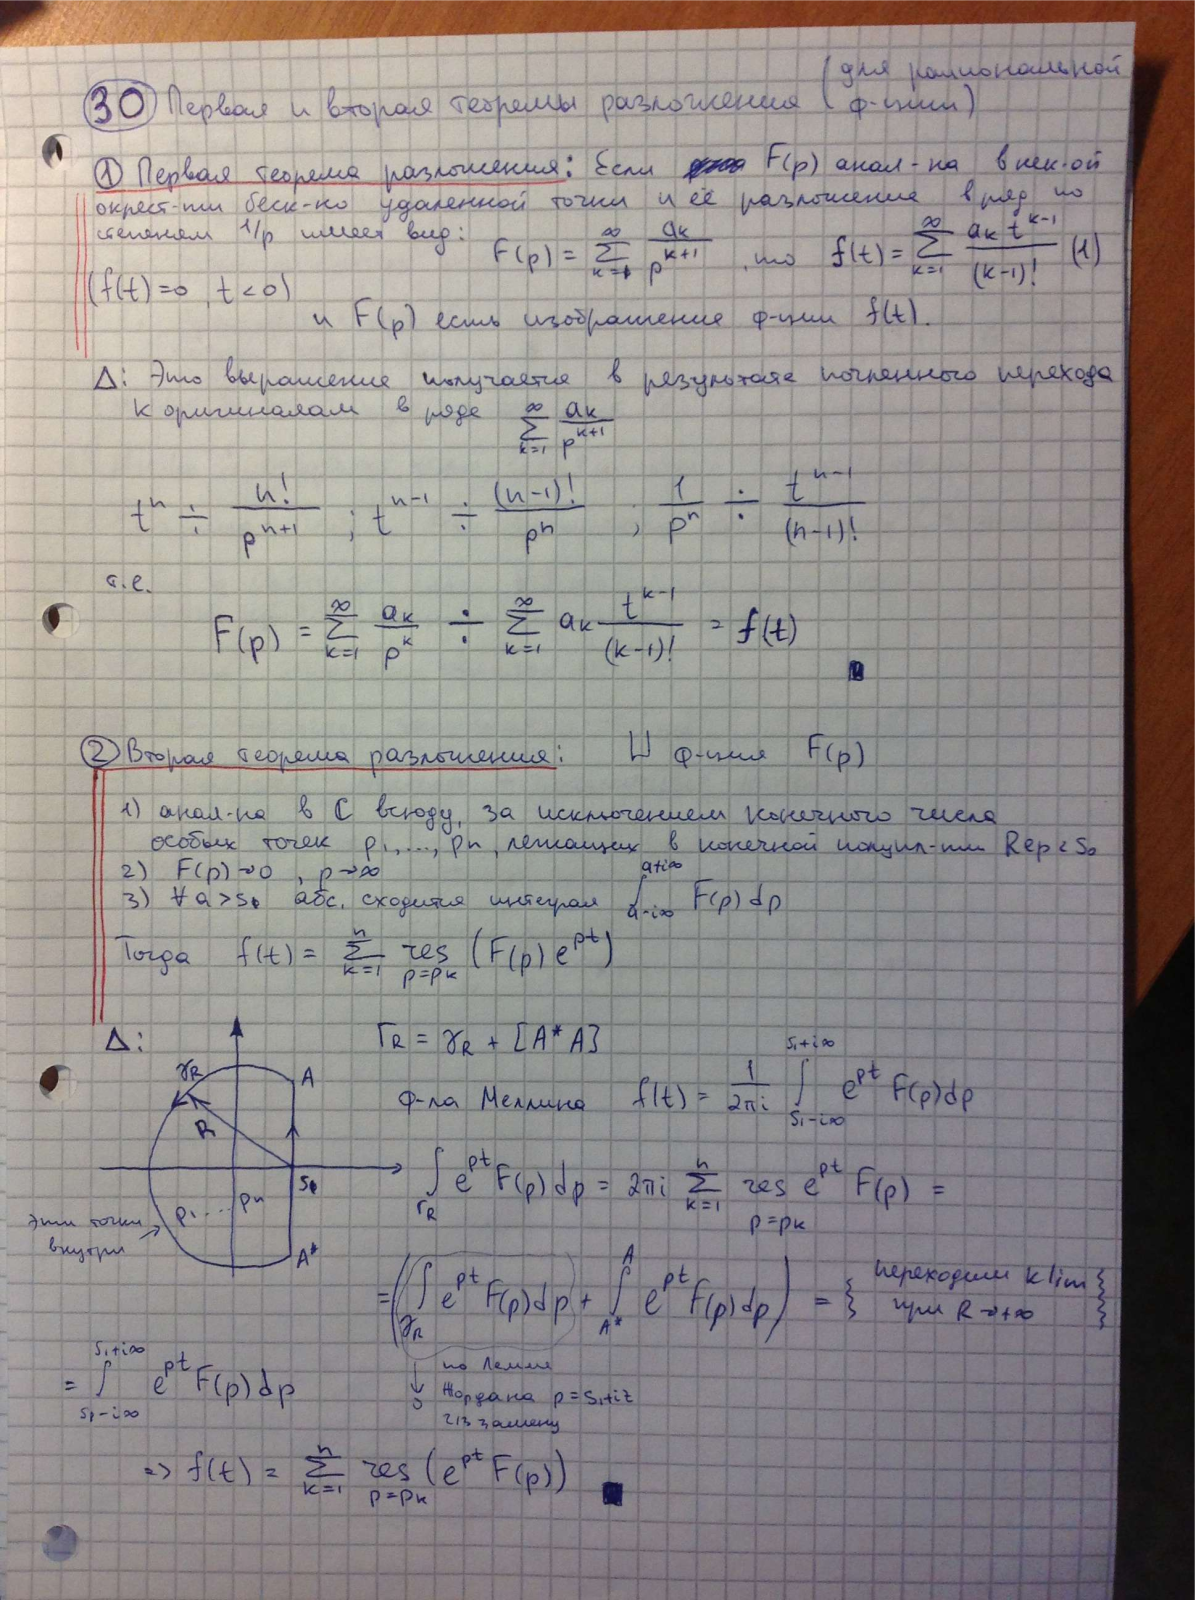 30 Первая и вторая теоремы разложения (для рациональной ф-ции)
① Первая теорема разложения: Если F(p) анал-на в нек-ой
окрест-ти беск-но удаленной точки и её разложение в ряд по
степеням 1/p имеет вид: F(p) = ∑_{k=1}^{∞} a_k/p^{k+1}, то f(t) = ∑_{k=1}^{∞} a_k t^{k-1}/(k-1)! (1)
(f(t)=0, t<0)
и F(p) есть изображение ф-ции f(t).
Δ: Это выражение получается в результате почленного перехода
к оригиналам в ряде ∑_{k=1}^{∞} a_k/p^{k+1}
t^n ÷ n!/p^{n+1} ; t^{n-1} ÷ (n-1)!/p^n ; 1/p^n ÷ t^{n-1}/(n-1)!
т.е.
F(p) = ∑_{k=1}^{∞} a_k/p^k ÷ ∑_{k=1}^{∞} a_k t^{k-1}/(k-1)! = f(t)
② Вторая теорема разложения: ⊔ ф-ция F(p)
1) анал-на в ℂ всюду, за исключением конечного числа
особых точек p₁,...,pₙ, лежащих в конечной полупл-ти Re p < S₀
2) F(p)→0, p→∞
3) ∀a>s₀ абс. сходится интеграл ∫_{a-i∞}^{a+i∞} F(p)dp
Тогда f(t) = ∑_{k=1}^{n} res_{p=p_k} (F(p)e^{pt})
Δ: Γ_R = γ_R + [A*A]
γ_R A
ф-ла Меллина f(t) = 1/(2πi) ∫_{s₁-i∞}^{s₁+i∞} e^{pt} F(p)dp
R
S₁
∫_{Γ_R} e^{pt} F(p)dp = 2πi ∑_{k=1}^{n} res_{p=p_k} e^{pt} F(p) =
p₁.... pₙ
Эти точки
внутри
A*
= (∫_{γ_R} e^{pt} F(p)dp + ∫_{A*}^{A} e^{pt} F(p)dp) = {переходим к lim при R→+∞}
↓ 0 по Лемме
Жордана p=s₁+iz
ч/з замену
= ∫_{s₁-i∞}^{s₁+i∞} e^{pt} F(p)dp
=> f(t) = ∑_{k=1}^{n} res_{p=p_k} (e^{pt} F(p))